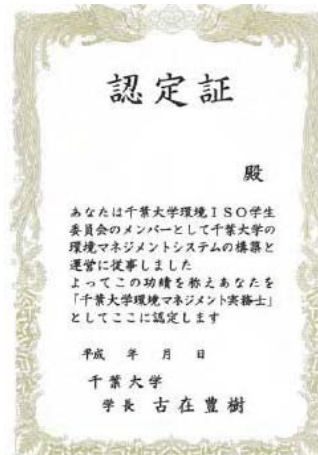 認定証
殿
あなたは千葉大学環境ISO学生
委員会のメンバーとして千葉大学の
環境マネジメントシステムの構築と
運営に従事しました
よってこの功績を称えあなたを
「千葉大学環境マネジメント実務士」
としてここに認定します
平成 年 月 日
千葉大学
学長 古在豊樹